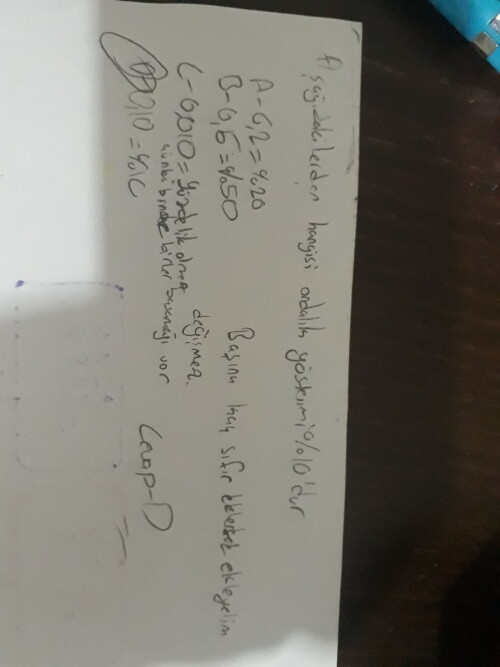 Aşağıdakilerden hangisi ondalık gösterimi %10'dur
A - 0,2 = %20
B - 0,5 = %50
Başına kaç sıfır eklersek ekleyelim
C - 0,010 = yüzdelik olmaz değişmez.
çünkü binde birler basamağı var
D) 0,10 = %10
Cevap - D